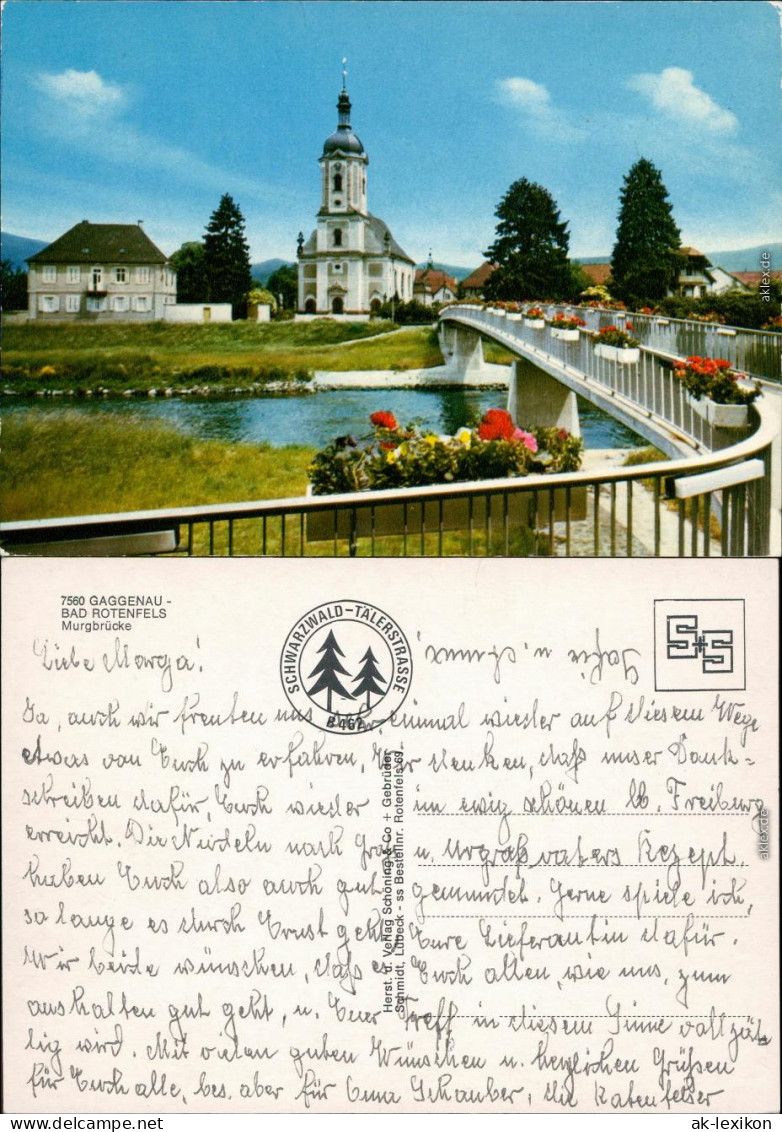 7560 GAGGENAU -
BAD ROTENFELS
Murgbrücke
SCHWARZWALD-TÄLERSTRASSE
B 462
Herst. u. Verlag Schöning & Co + Gebrüder
Schmidt, Lübeck - ss Bestellnr. Rotenfels 69
Liebe Marga!
Ja, auch wir freuten uns einmal wieder auf diesem Wege
etwas von Euch zu erfahren. Wir denken, daß unser Dank=
schreiben dafür, Euch wieder im ewig schönen Freiburg
erreicht. Die Nudeln nach u. Urgroßvaters Rezept,
haben Euch also auch gut gemundet. Gerne spiele ich,
so lange es durch Ernst geht, Eure Lieferantin dafür.
Wir beide wünschen, daß es Euch allen, wie uns, zum
aushalten gut geht, u. Euer Treff in diesem Sinne vollzäh=
lig wird. Mit vielen guten Wünschen u. herzlichen Grüßen
für Euch alle, bes. aber für Schauber, die Ratenfelser
Sofie u.
ak-lexikon
aklex.de
aklex.de
ak-lexikon.com